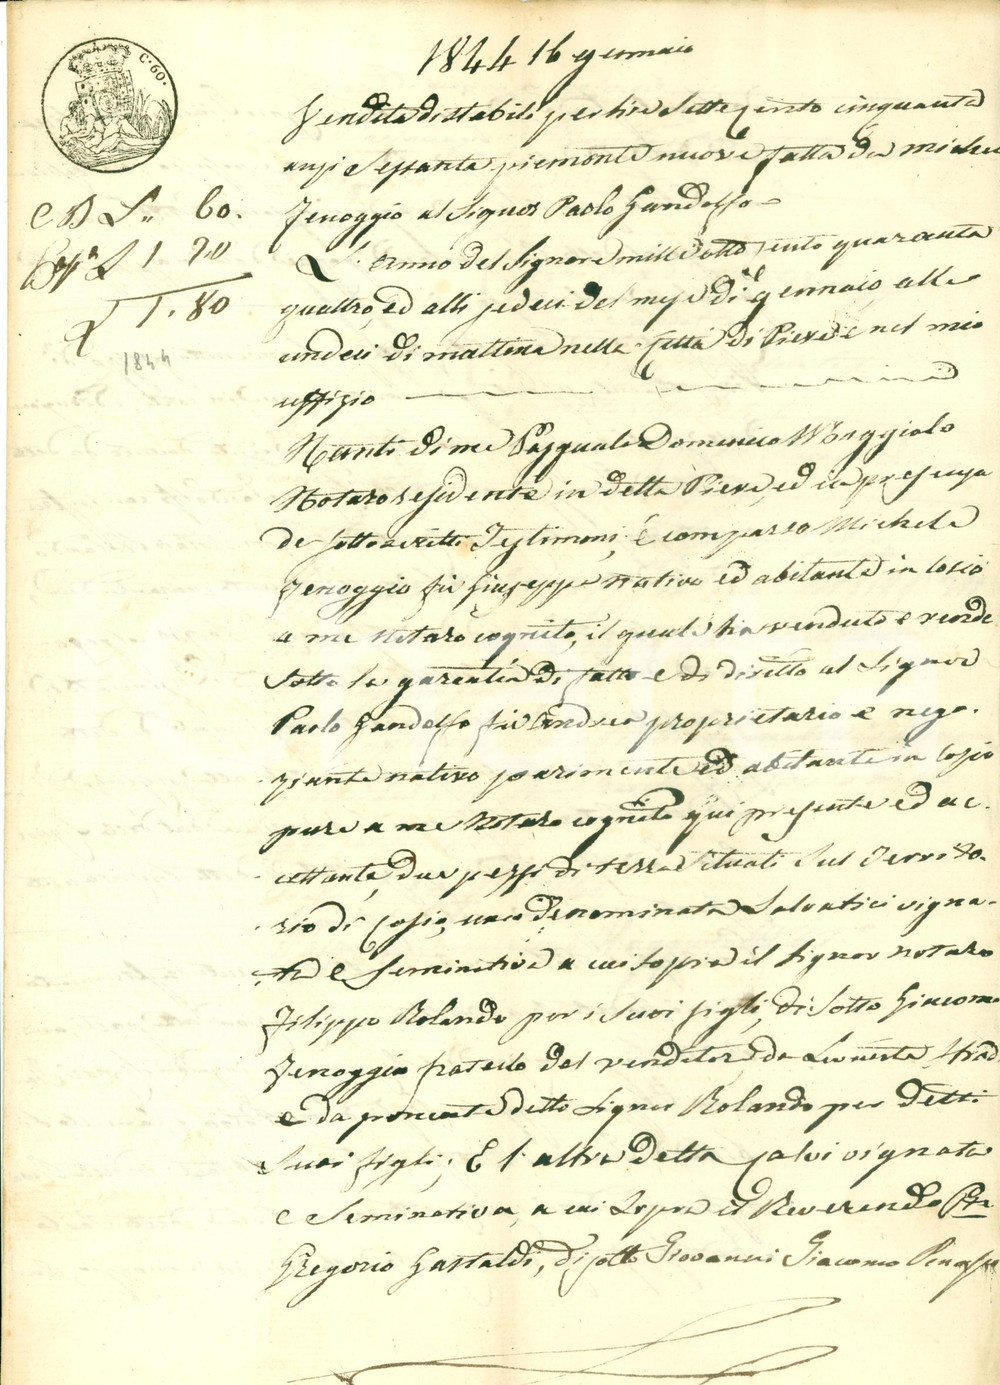 1844 16 gennaio
C. 60.
Vendita di stabili per lire Sette cento cinquanta
anzi Sessanta piemonte nuove fatta da Michele
Zenoggio al Signor Paolo Gandolfo =
L. 60.
L 1 20
L 1. 80
1844
L'anno del Signore mille otto cento quaranta
quattro, ed alli sedeci del mese di gennaio, alle
undeci di mattina nella Città di Pieve e nel mio
uffizio
Nanti di me Pasquale Domenico
Notaro residente in detta Pieve, ed in presenza
de sottoscritti Testimoni, è comparso Michele
Zenoggio fu Giuseppe nativo ed abitante in Cosio
a me Notaro cognito, il quale ha venduto e vende
sotto la garentia di fatto e di diritto al Signor
Paolo Gandolfo fu Andrea proprietario e nego-
ziante nativo parimente ed abitante in Cosio
pure a me Notaro cognito qui presente ed ac-
cettante, due pezzi di terra situati sul Territo-
rio di Cosio, uno denominata Salvatici vigna-
ta e seminativa a cui sopra il Signor notaro
Filippo Rolando per i suoi figli, di sotto Giacomo
Zenoggio fratello del venditore da strad
e da ponente detto Signor Rolando per detti
suoi figli; E l'altra detta Calvi vignata
e Seminativa, a cui sopra il Reverendo
Gregorio Gastaldi, di sotto Giovanni Giacomo